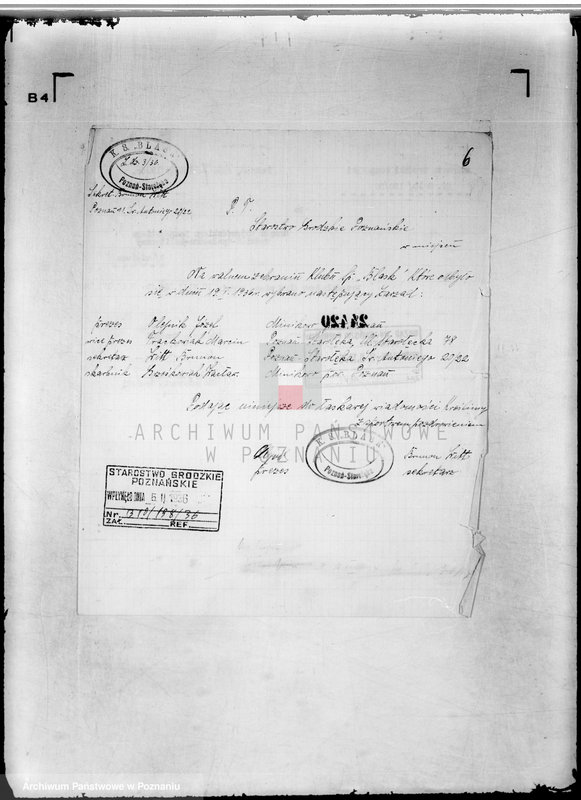 B4
6
K. R. "BLASK"
L. dz. 3/36
Poznań-Starołęka
Sekret. Brunon Witt
Poznań Św. Antoniego 21/22
P. T.
Starostwo Grodzkie Poznańskie
w miejscu
Na walnem zebraniu Klubu Sp. "Blask" które odbyło
się w dniu 19. I. 1936 r. wybrano następujący Zarząd:
prezes Olejnik Józef Minikowo Poznań
24420
wice prezes Marcin Poznań Starołęka, ul. Starołęcka 78
sekretarz Witt Brunon Poznań Starołęka Św. Antoniego 21/22
skarbnik Wacław Minikowo pow. Poznań
Podając niniejsze do łaskawej wiadomości kreślimy
z sportowem pozdrowieniem
ARCHIWUM PAŃSTWOWE
W POZNANIU
K. R. "BLASK"
Poznań-Starołęka
prezes
Brunon Witt
sekretarz
STAROSTWO GRODZKIE
POZNAŃSKIE
WPŁYNĘŁO DNIA 6. II 1936
Nr.
ZAŁ. REF.
Archiwum Państwowe w Poznaniu